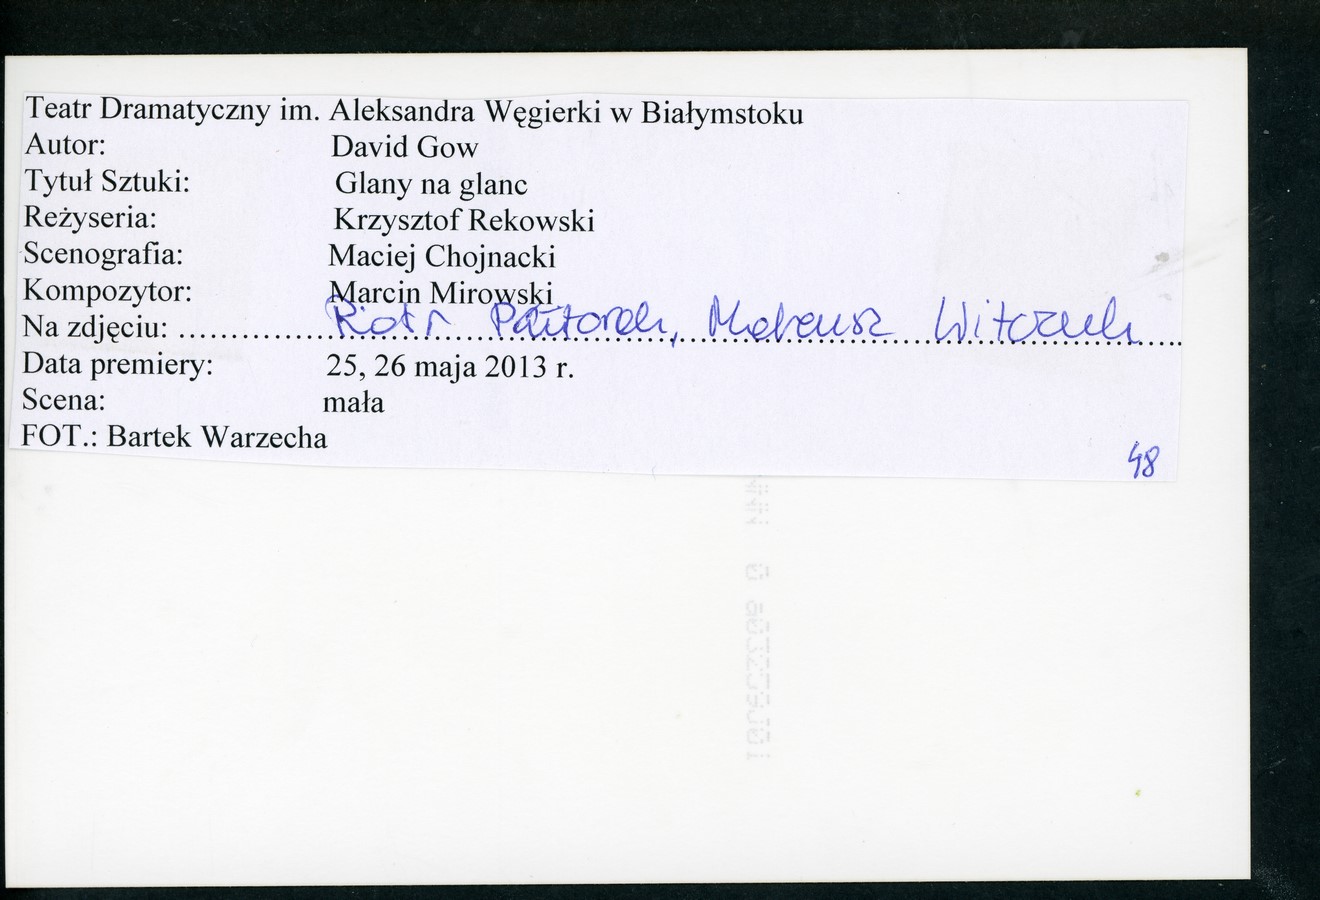 Teatr Dramatyczny im. Aleksandra Węgierki w Białymstoku
Autor: David Gow
Tytuł Sztuki: Glany na glanc
Reżyseria: Krzysztof Rekowski
Scenografia: Maciej Chojnacki
Kompozytor: Marcin Mirowski
Na zdjęciu: Piotr Półtorak, Mateusz Witczuk
Data premiery: 25, 26 maja 2013 r.
Scena: mała
FOT.: Bartek Warzecha
48